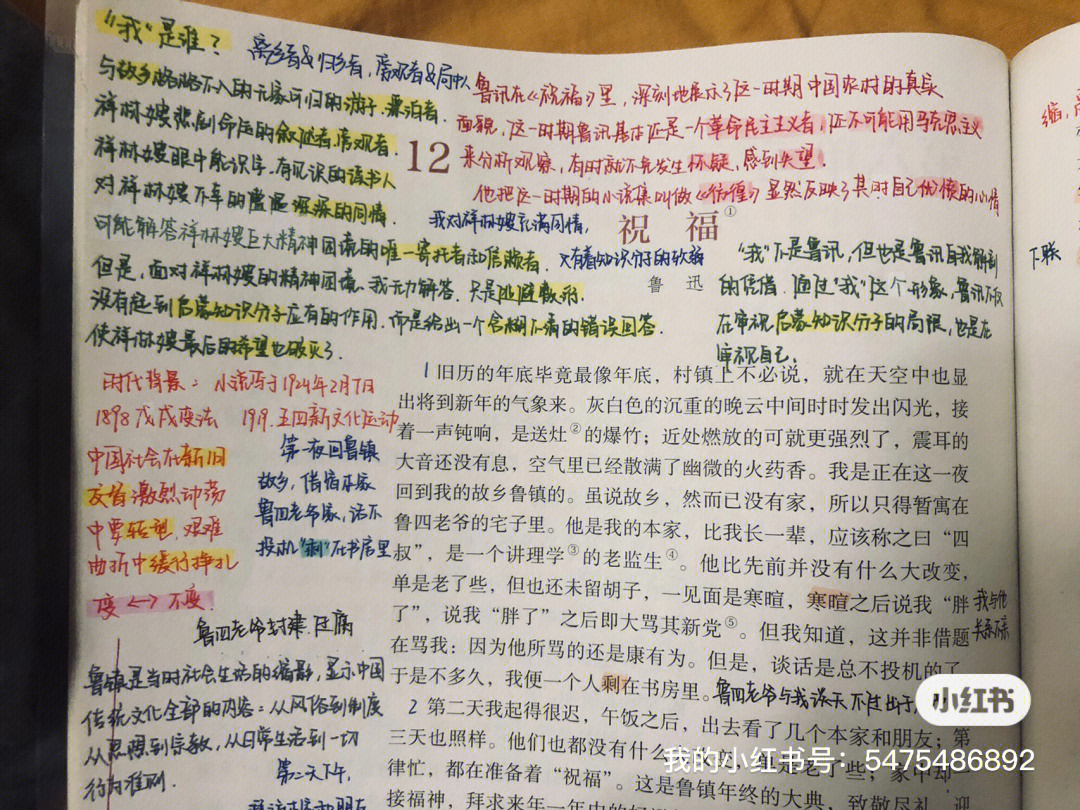 “我”是谁？
离乡者&归乡者，旁观者&局中人
与故乡格格不入的无家可归的游子、漂泊者.
祥林嫂悲剧命运的叙述者，旁观者.
祥林嫂眼中能识字、有见识的读书人
对祥林嫂不幸的遭遇深深的同情.
可能解答祥林嫂巨大精神困境的唯一寄托者和信赖者.
但是，面对祥林嫂的精神困境、我无力解答. 只是逃避敷衍.
没有起到启蒙知识分子应有的作用. 而是给出一个含糊不清的错误回答.
使祥林嫂最后的希望也破灭了.
鲁讯在《祝福》里，深刻地展示了这一时期中国农村的真实
面貌，这一时期鲁讯基本还是一个革命民主主义者，还不可能用马克思主义
来分析观察，有时就不免发生怀疑，感到失望.
他把这一时期的小说集叫做《彷徨》显然反映了其时自己的心情
12
我对祥林嫂充满同情，
又有着知识分子的软弱
祝 福①
鲁 迅
“我”不是鲁讯，但也是鲁讯自我解剖
的凭借. 通过“我”这个形象，鲁讯不仅
在审视启蒙知识分子的局限，也是在
审视自己.
时代背景： 小说写于1924年2月7日
1898 戊戌变法 1919. 五四新文化运动
中国社会在新旧
交替激烈动荡
中要转型. 艰难
曲折中缓行挣扎
变 <-> 不变.
第一夜回鲁镇
故乡，借宿本家
鲁四老爷家，话不
投机“剩”在书房里
鲁四老爷封建 迂腐
鲁镇是当时社会生活的缩影，显示中国
传统文化全部的内容：从风俗到制度
从思想到宗教，从日常生活到一切
行为准则.
第二天下午，
1 旧历的年底毕竟最像年底，村镇上不必说，就在天空中也显
出将到新年的气象来。灰白色的沉重的晚云中间时时发出闪光，接
着一声钝响，是送灶②的爆竹；近处燃放的可就更强烈了，震耳的
大音还没有息，空气里已经散满了幽微的火药香。我是正在这一夜
回到我的故乡鲁镇的。虽说故乡，然而已没有家，所以只得暂寓在
鲁四老爷的宅子里。他是我的本家，比我长一辈，应该称之曰“四
叔”，是一个讲理学③的老监生④。他比先前并没有什么大改变，
单是老了些，但也还未留胡子，一见面是寒暄，寒暄之后说我“胖
了”，说我“胖了”之后即大骂其新党⑤。但我知道，这并非借题
在骂我：因为他所骂的还是康有为。但是，谈话是总不投机的了，
于是不多久，我便一个人剩在书房里。
我与他
关系不亲
鲁四老爷与我谈天不过出于
2 第二天我起得很迟，午饭之后，出去看了几个本家和朋友；第
三天也照样。他们也都没有什么大改变，单是老了些；家中却一
律忙，都在准备着“祝福”。这是鲁镇年终的大典，致敬尽礼，迎
接福神，拜求来年一年中的好
下联
小红书
我的小红书号：5475486892